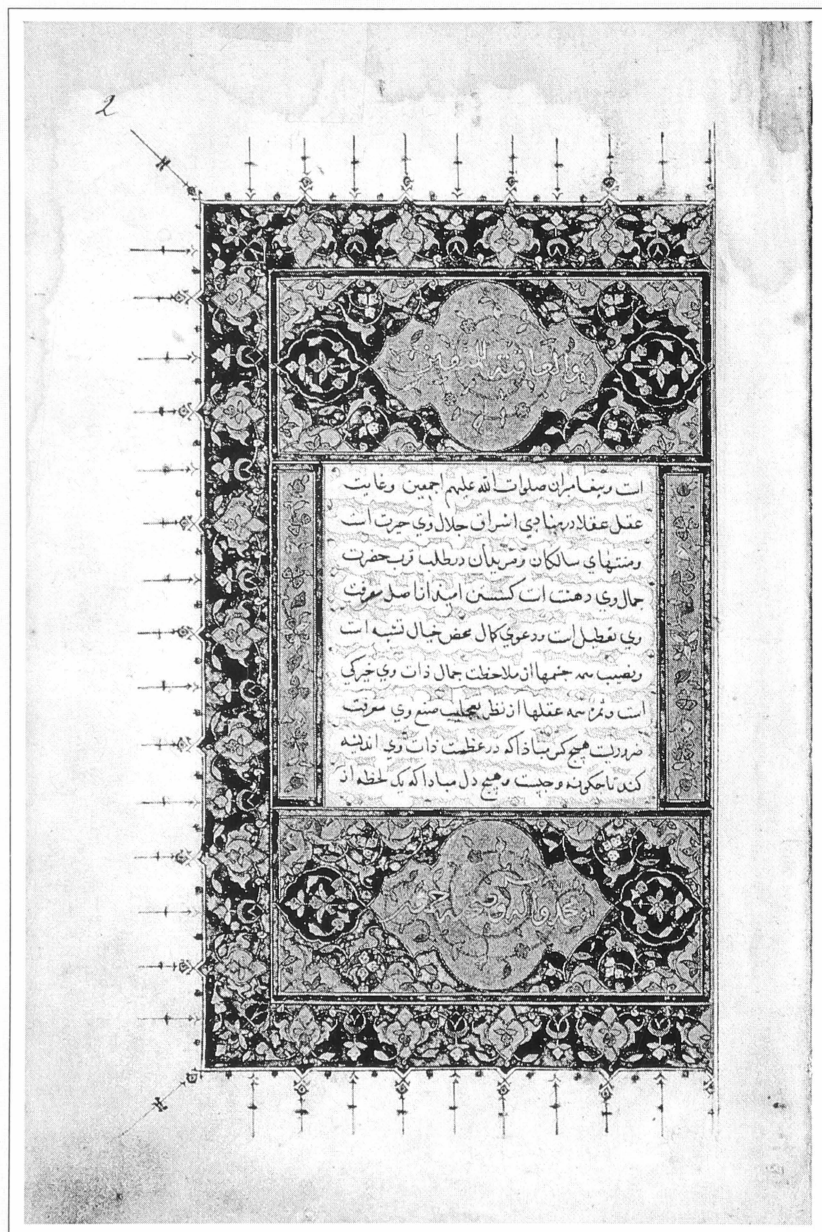 2
والعاقبة للمتقين
است وپیغامبران صلوات الله علیهم اجمعین وغایت
عقل عقلا در مبادی اشراق جلال وی حیرت است
ومنتهای سالکان و مریدان در طلب قرب حضرت
جمال وی دهشت است کسستن امید از اصل معرفت
وی تعطیل است ودعوی کمال محض خیال تشبیه است
ونصیب همه چشمها از ملاحظت جمال ذات وی خیرکی
است وثمره همه عقلها از نظر بعجایب صنع وی معرفت
ضروریست هیچ کس مباذا که در عظمت ذات وی اندیشه
کند تا چکونه وچیست وهیچ دل مبادا که یک لحظه از
محمد وآله